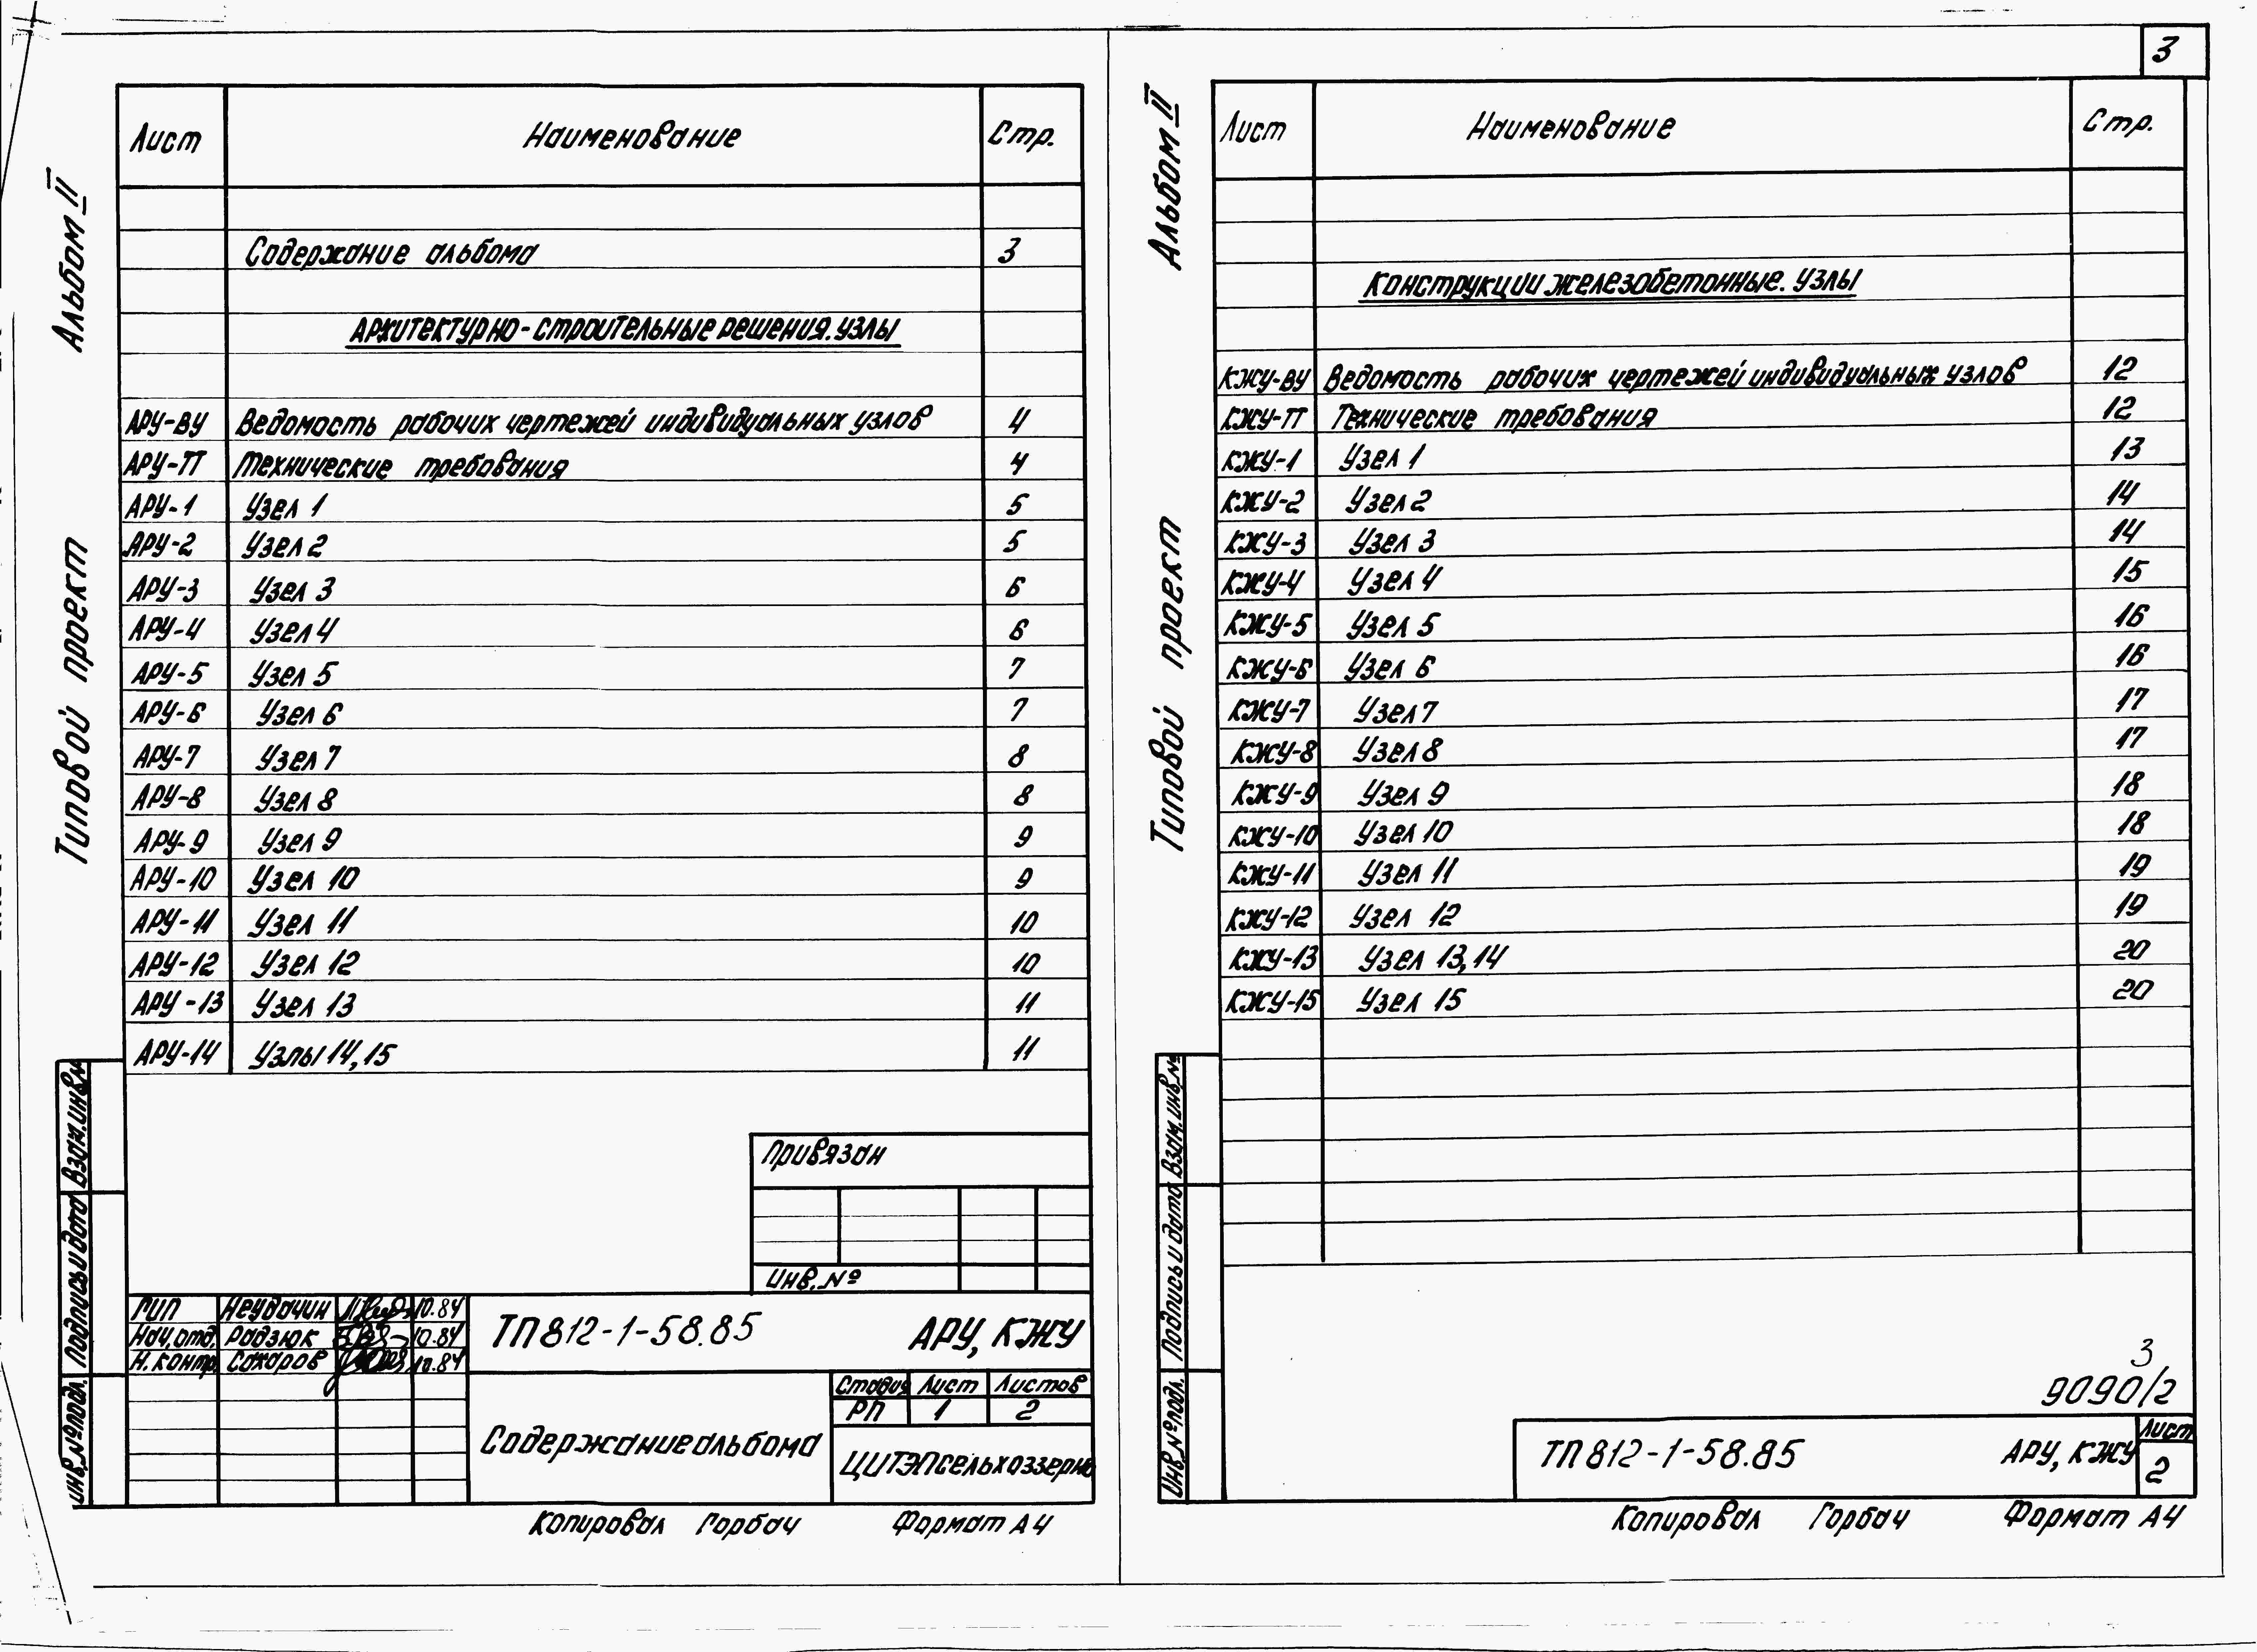 3
Альбом II
Типовой проект
Лист Наименование Стр.
Содержание альбома 3
Архитектурно-строительные решения. Узлы
АРУ-ВУ Ведомость рабочих чертежей индивидуальных узлов 4
АРУ-ТТ Технические требования 4
АРУ-1 Узел 1 5
АРУ-2 Узел 2 5
АРУ-3 Узел 3 6
АРУ-4 Узел 4 6
АРУ-5 Узел 5 7
АРУ-6 Узел 6 7
АРУ-7 Узел 7 8
АРУ-8 Узел 8 8
АРУ-9 Узел 9 9
АРУ-10 Узел 10 9
АРУ-11 Узел 11 10
АРУ-12 Узел 12 10
АРУ-13 Узел 13 11
АРУ-14 Узлы 14, 15 11
Взам. инв. №
Подпись и дата
Инв. № подл.
Привязан
Инв. №
ГИП Неудачин 10.84
Нач. отд. Радзюк 10.84
Н. контр. Сахаров 10.84
ТП 812-1-58.85 АРУ, КЖУ
Содержание альбома
Стадия Лист Листов
РП 1 2
ЦИТЭПсельхоззерно
Копировал Горбач Формат А4
Альбом II
Типовой проект
Лист Наименование Стр.
Конструкции железобетонные. Узлы
КЖУ-ВУ Ведомость рабочих чертежей индивидуальных узлов 12
КЖУ-ТТ Технические требования 12
КЖУ-1 Узел 1 13
КЖУ-2 Узел 2 14
КЖУ-3 Узел 3 14
КЖУ-4 Узел 4 15
КЖУ-5 Узел 5 16
КЖУ-6 Узел 6 16
КЖУ-7 Узел 7 17
КЖУ-8 Узел 8 17
КЖУ-9 Узел 9 18
КЖУ-10 Узел 10 18
КЖУ-11 Узел 11 19
КЖУ-12 Узел 12 19
КЖУ-13 Узел 13, 14 20
КЖУ-15 Узел 15 20
Взам. инв. №
Подпись и дата
Инв. № подл.
3
9090/2
ТП 812-1-58.85 АРУ, КЖУ
Лист
2
Копировал Горбач Формат А4